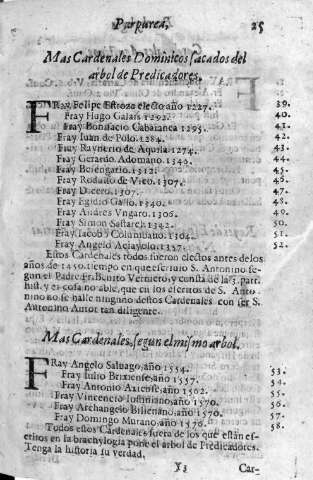 Purpurea, 25
Mas Cardenales Dominicos sacados del
arbol de Predicadores.
FRay Felipe Estroza electo año 1227. 39.
Fray Hugo Galais 1292. 40.
Fray Bonifacio Cabaranca 1295. 41.
Fray Iuan de Polo. 1284. 42.
Fray Raynerio de Aquila 1274. 43.
Fray Gerardo Adomano. 1340. 44.
Fray Berengario. 1312. 45.
Fray Rodulfo de Vico. 1307. 46.
Fray Dicero. 1307. 47.
Fray Egidio Gallo. 1340. 48.
Fray Andres Vngaro. 1306. 49.
Fray Simon Saltarelo. 1342. 50.
Fray Iacobo Columbano. 1304. 51.
Fray Angelo Aciayolo. 1357. 52.
Estos Cardenales todos fueron electos antes delos
años de 1450. tiempo en que escriuio S. Antonino se-
gun el Padre Fr. Benito Vernero, y consta de la 3. part.
hist. y es cosa no able, que en los escritos de S. Anto
nino no se halle ninguno destos Cardenales con ser S.
Antonino Autor tan diligente.
Mas Cardenales, segun el mismo arbol.
FRay Angelo Saluago, año 1554. 53.
Fray Iulio Brixiense, año 1557. 54.
Fray Antonio año 1562. 55.
Fray Vincencio Iustiniano, año 1570. 56.
Fray Archangelo año 1570. 57.
Fray Domingo Murano, año 1570. 58.
Todos estos Cardenales fuera de los que están es-
critos en la brachylogia pone el arbol de Predicadores.
Tenga la historia su verdad,
Y3 Car-